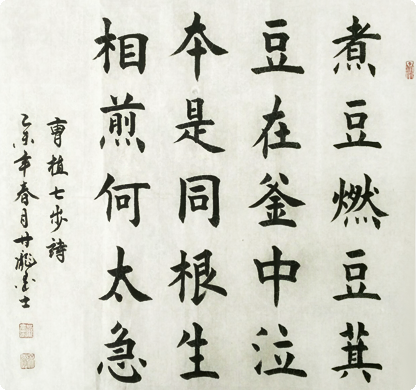 煮豆燃豆萁
豆在釜中泣
本是同根生
相煎何太急
曹植七步詩
乙未年春月